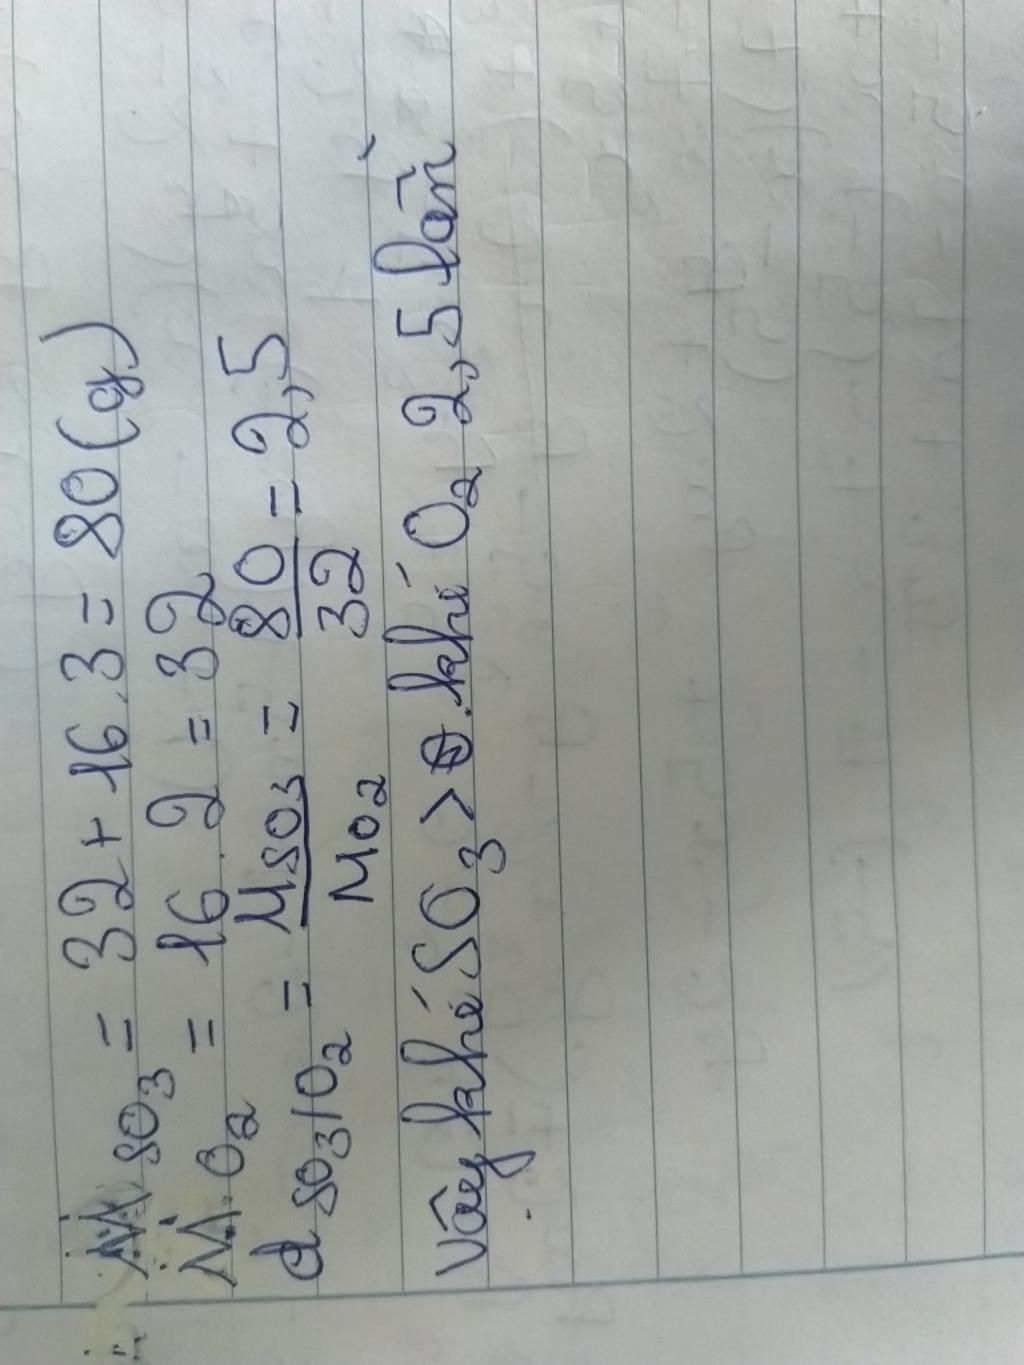 M SO₃ = 32 + 16 . 3 = 80 (g)
M O₂ = 16 . 2 = 32
d SO₃/O₂ = MSO₃/MO₂ = 80/32 = 2,5
Vậy khí SO₃ > khí O₂ 2,5 lần